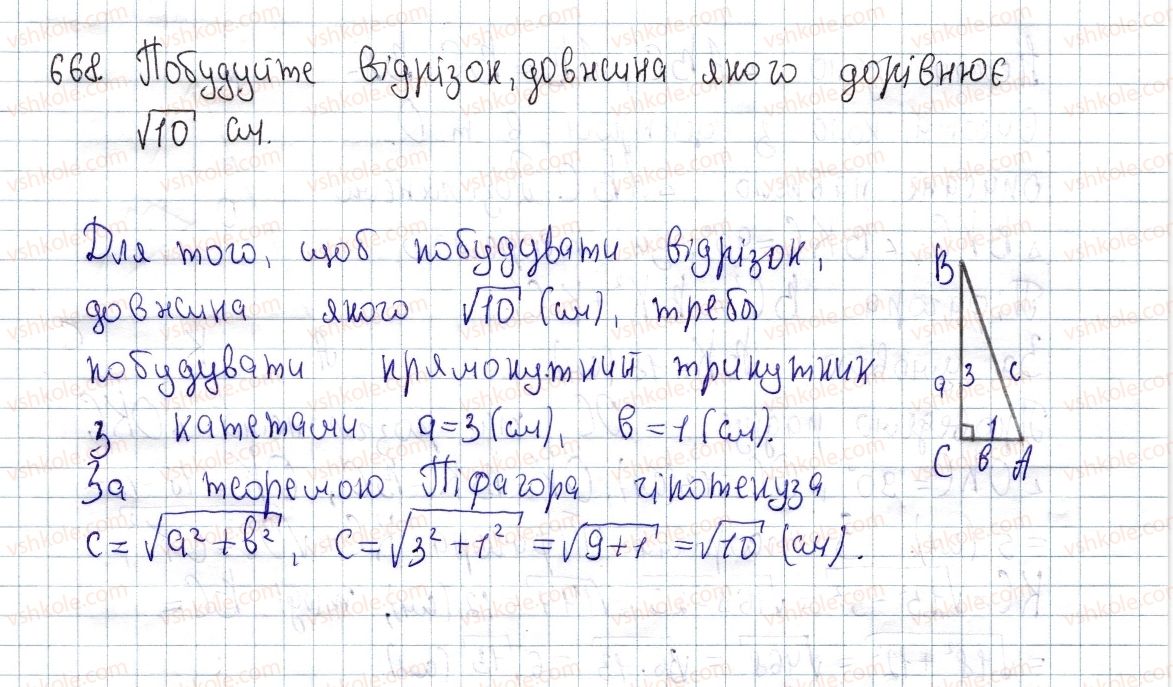 668. Побудуйте відрізок, довжина якого дорівнює
√10 см.
Для того, щоб побудувати відрізок,
довжина якого √10 (см), требы
побудувати прямокутний трикутник
з катетами a=3 (см), в=1 (см).
За теоремою Піфагора гіпотенуза
c=√a²+в², c=√3²+1² =√9+1 =√10 (см).
B
a 3 c
1
C в A
vshkole.com